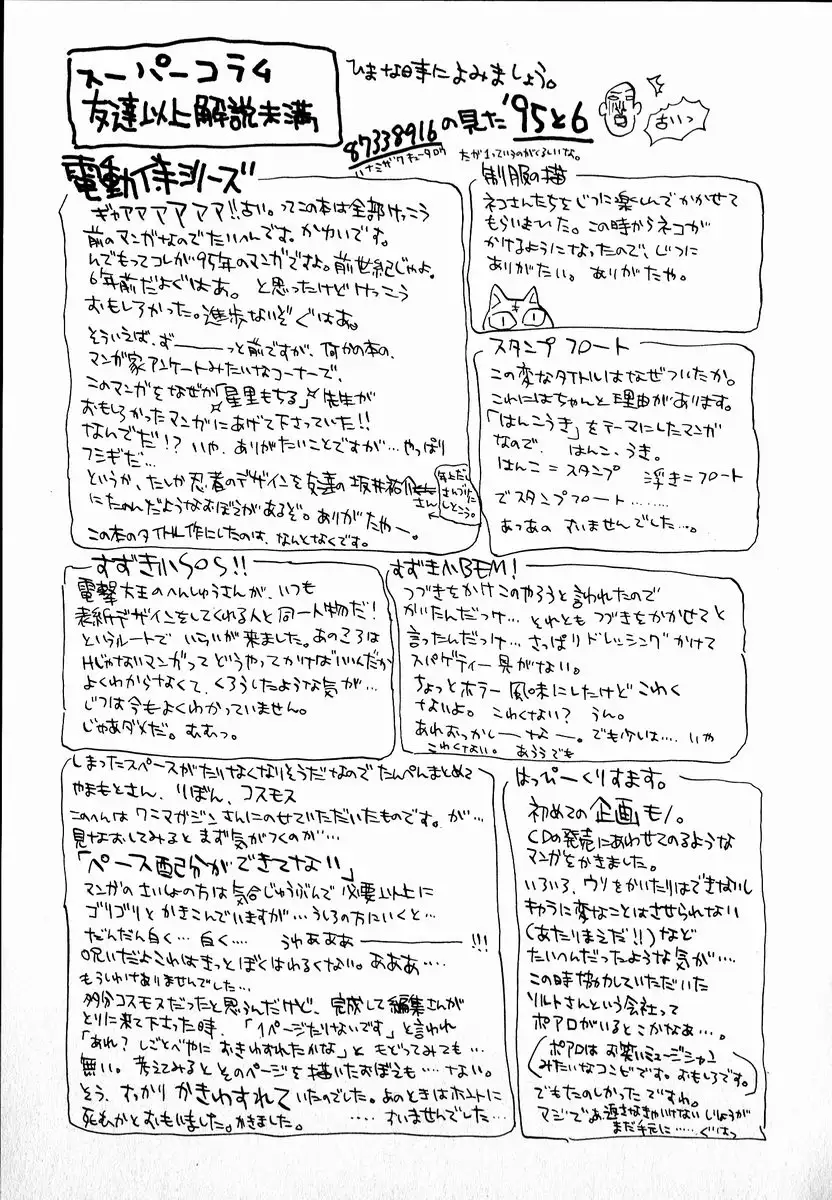 スーパーコラム
友達以上解説未満
ひまな時によみましょう。
87338916の見た'95と6
ハナミザワキュータロウ
古いっ
電動侍シリーズ
ギャアアアアアア!!古い。ってこの本は全部けっこう
前のマンガなのでたいへんです。かわいです。
んでもってコレが95年のマンガですよ。前世紀じゃよ。
6年前だよぐはあ。と思ったけどけっこう
おもしろかった。進歩ないぞぐはあ。
そういえば、ず――っと前ですが、何かの本の、
マンガ家アンケートみたいなコーナーで、
このマンガをなぜか「星里もちる」先生が
おもしろかったマンガにあげて下さっていた!!
なんでだ!?いや、ありがたいことですが…やっぱり
フシギだ…
というか、たしか忍者のデザインを友達の坂井祐介さん
にたのんだようなおぼえがあるぞ。ありがたやー。
年上だし
さんづけに
しとこう。
この本のタイトル作にしたのは、なんとなくです。
制服の猫
ネコさんたちをじつに楽しんでかかせて
もらいました。この時からネコが
かけるようになったので、じつに
ありがたい。ありがたや。
スタンプフロート
この変なタイトルはなぜついたか。
これにはちゃんと理由があります。
「はんこうき」をテーマにしたマンガ
なので、はんこ、うき。
はんこ=スタンプ 浮き=フロート
でスタンプフロート………
あっあの すいませんでした…。
すずき小SOS!!
電撃大王のへんしゅうさんが、いつも
表紙デザインをしてくれる人と同一人物だ!
というルートでいらいが来ました。あのころは
Hじゃないマンガってどうやってかけばいいんだか
よくわからなくて、くろうしたような気が…
じつは今もよくわかっていません。
じゃあダメだ。むむっ。
すずき小BEM!
つづきをかけこのやろうと言われたので
かいたんだっけ…それともつづきをかかせてと
言ったんだっけ…さっぱりドレッシングかけて
スパゲティー 具がない。
ちょっとホラー風味にしたけどこわく
ないよ。こわくない? うん。
あれむっかしーなー。でも少しは…いや
こわくない。あろうでも
しまったスペースがたりなくなりそうだなのでたんぺんまとめて
やまもとさん、りぼん、コスモス
このへんはワニマガジンさんにのせていただいたものです。が…
見なおしてみるとまず気がつくのが…
「ペース配分ができてない」
マンガのさいしょの方は気合じゅうぶんで必要以上に
ゴリゴリとかきこんでいますが…うしろの方にいくと…
だんだん白く…白く…うわあああ――――!!!
呪いだよこれはきっとぼくはわるくない。あああ…
もうしわけありませんでした…
多分コスモスだったと思うんだけど、完成して編集さんが
とりに来て下さった時、「1ページたりないです」と言われ
「あれ?しごとべやにおきわすれたかな」ともどってみても…
無い。考えてみるとそのページを描いたおぼえも…ない。
そう、すっかりかきわすれていたのでした。あのときはホントに
死ぬかとおもいました。かきました。 ……すいませんでした…
はっぴーくりすます。
初めての企画モノ。
CDの発売にあわせてのるような
マンガをかきました。
いろいろ、ウリをかいたりはできないし
キャラに変なことはさせられない
(あたりまえだ!!)など
たいへんだったような気が…
この時協力していただいた
ソルトさんという会社って
ポアロがいるとこかなあ…。
(ポアロはお笑いミュージシャン
みたいなコンビです。おもしろです。)
でもたのしかったですわ。
マジであ返さなきゃいけないしりょうが
まだ手元に……ぐはっ